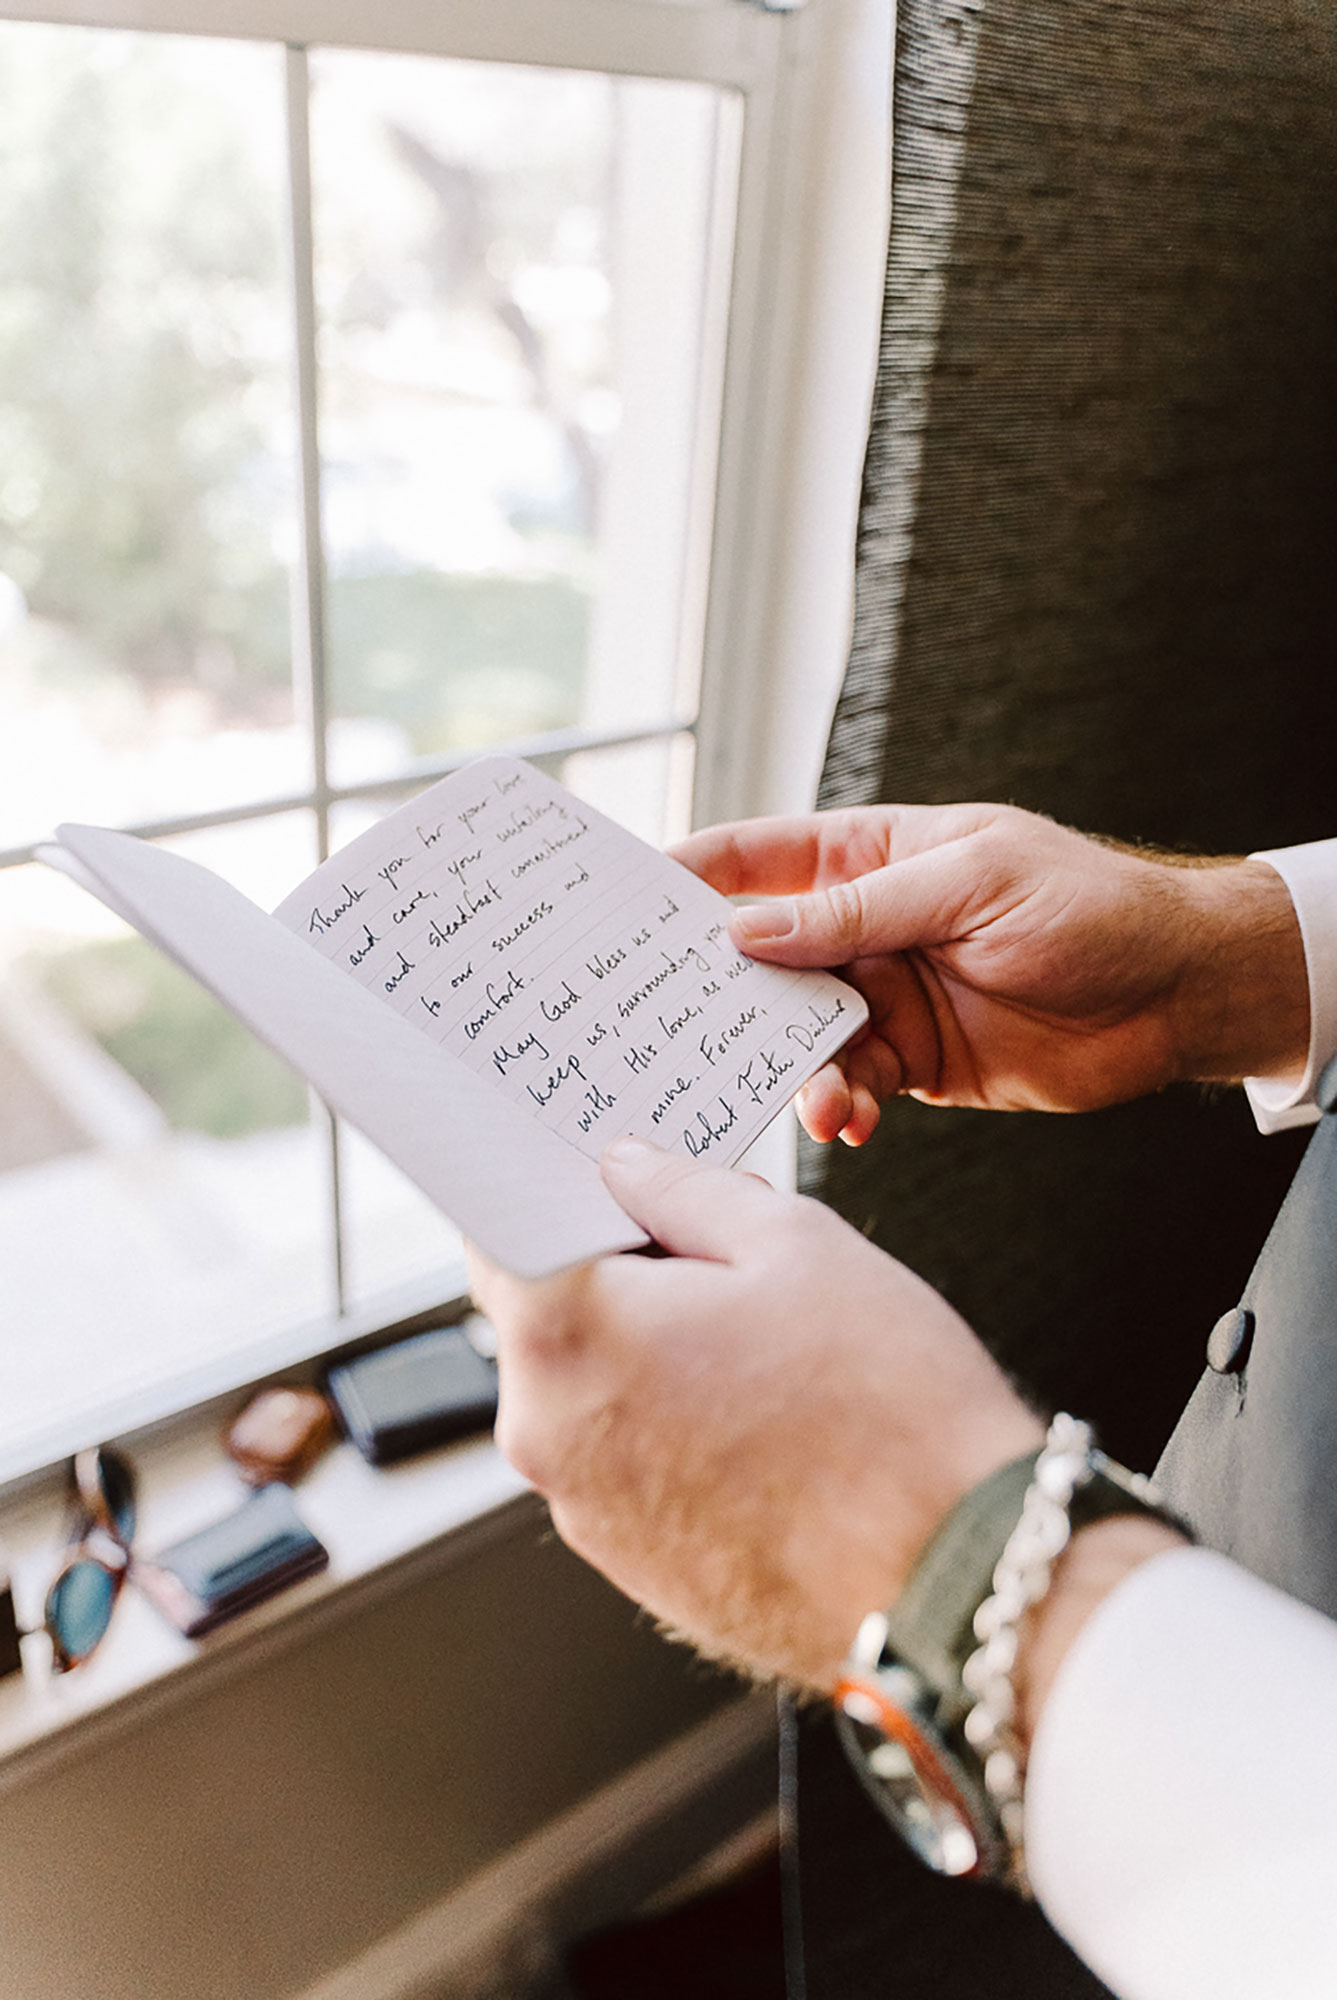 Thank you for your love
and care, your unfailing
and steadfast commitment
to our success and
comfort.
May God bless us and
keep us, surrounding you
with His love, as well
mine. Forever,
Robert Foster